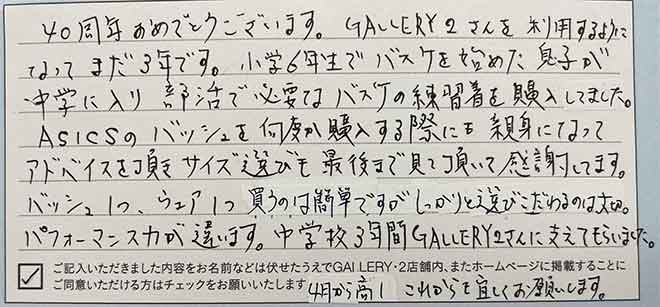 40周年おめでとうございます。GALLERY2さんを利用するように
なってまだ3年です。小学6年生でバスケを始めた息子が
中学に入り部活で必要なバスケの練習着を購入してました。
ASICSのバッシュを何度か購入する際にも親身になって
アドバイスを頂きサイズ選びも最後まで見て頂いて感謝してます。
バッシュ1つ、ウェア1つ買うのは簡単ですがしっかりと選びこだわるのは大切。
パフォーマンス力が違います。中学校3年間GALLERY2さんに支えてもらいました。
ご記入いただきました内容をお名前などは伏せたうえでGALLERY・2店舗内、またホームページに掲載することに
ご同意いただける方はチェックをお願いいたします
4月から高1 これからも宜しくお願いします。